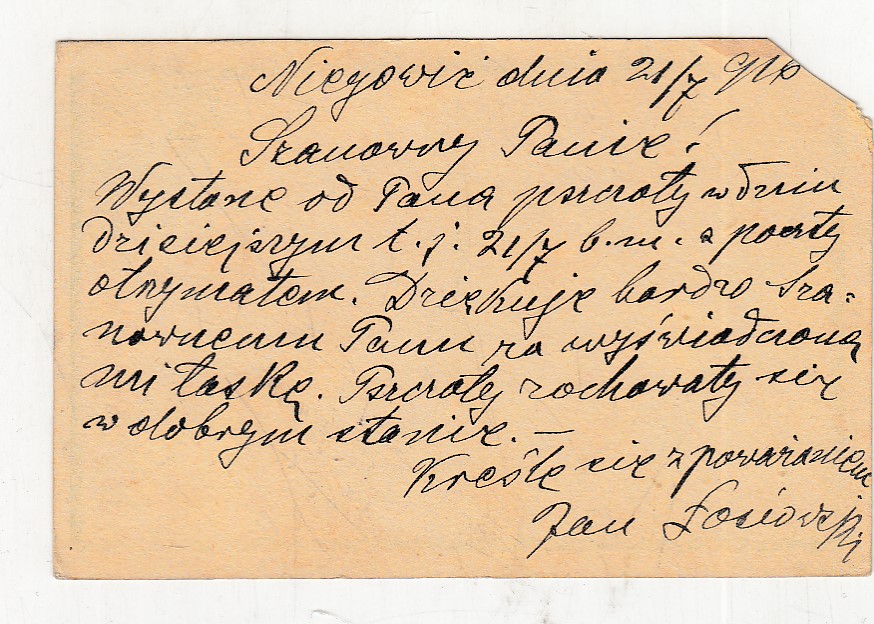 Niegowić dnia 21/7 916
Szanowny Panie!
Wysłane od Pana pszczoły w dniu
dzisiejszym t. j. 21/7 b. m. z poczty
otrzymałem. Dziękuję bardzo Sza=
nownemu Panu za wyświadczoną
mi łaskę. Pszczoły zachowały się
w dobrym stanie. —
Kreślę się z poważaniem
Jan